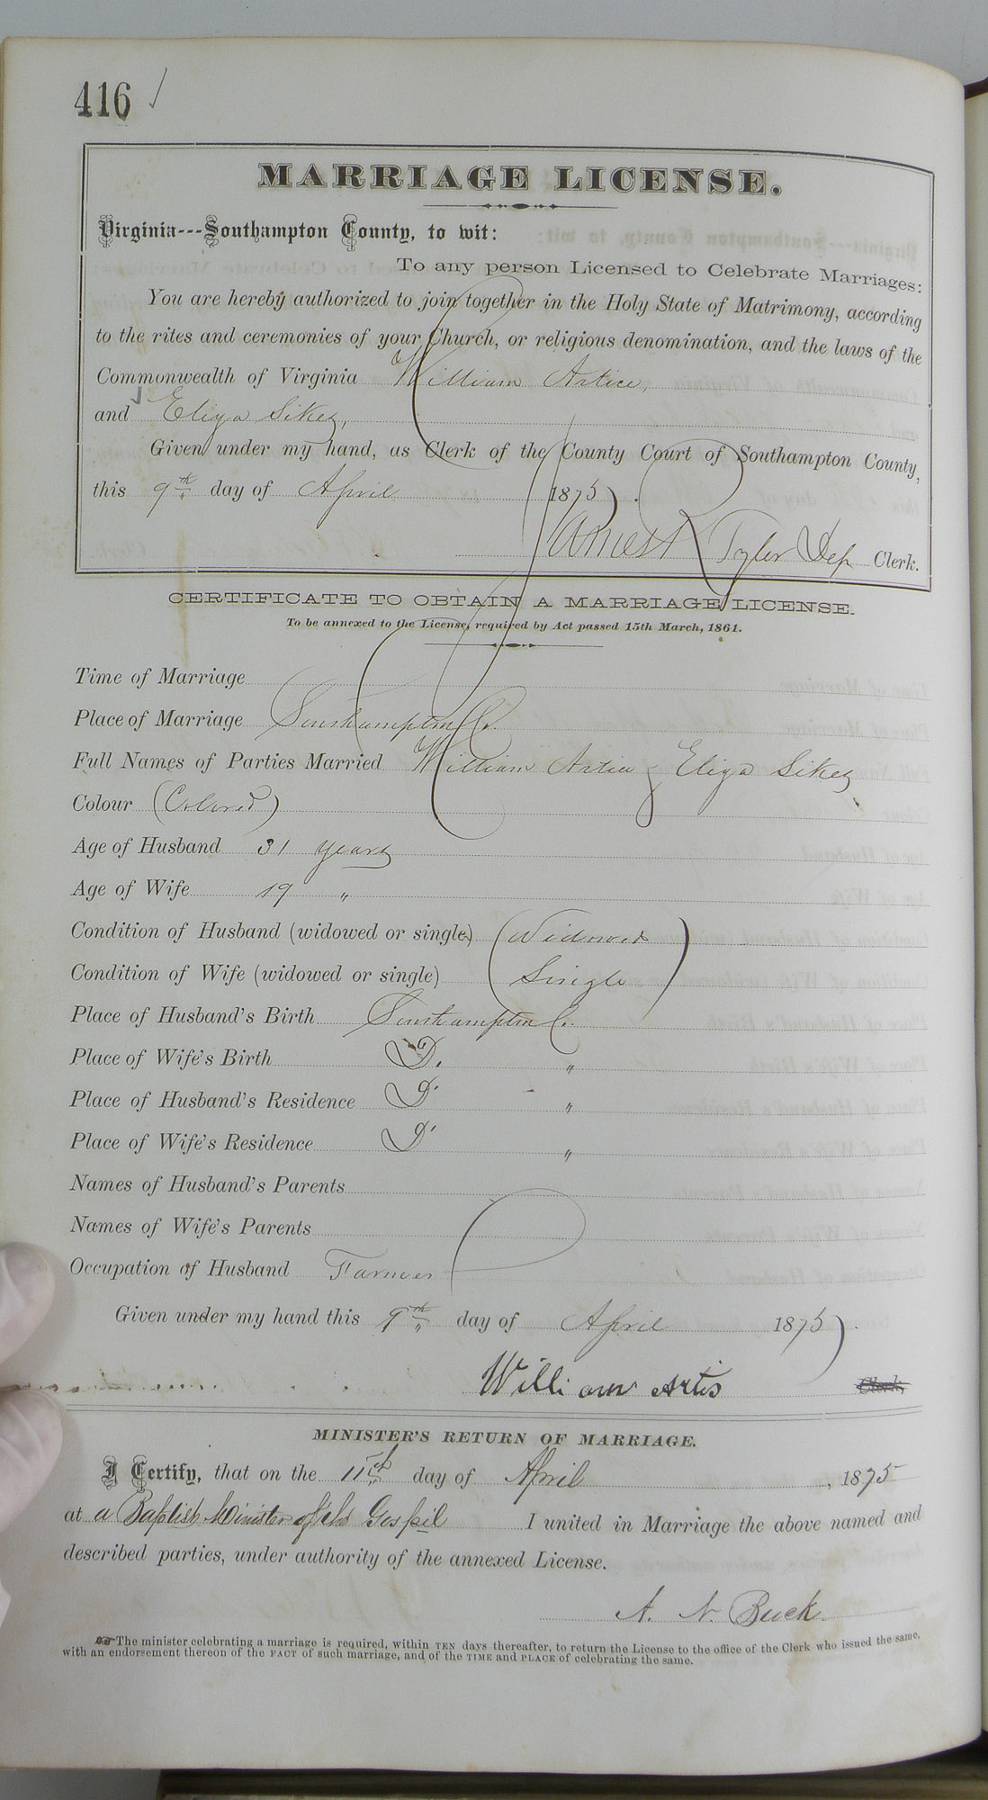 416 ✓
MARRIAGE LICENSE.
Virginia---Southampton County, to wit:
To any person Licensed to Celebrate Marriages:
You are hereby authorized to join together in the Holy State of Matrimony, according
to the rites and ceremonies of your Church, or religious denomination, and the laws of the
Commonwealth of Virginia William Artice,
and Eliza Sikes,
Given under my hand, as Clerk of the County Court of Southampton County,
this 9th day of April 1875.
Tyler Dep Clerk.
CERTIFICATE TO OBTAIN A MARRIAGE LICENSE.
To be annexed to the License, required by Act passed 15th March, 1861.
Time of Marriage
Place of Marriage Southampton Co.
Full Names of Parties Married William Artice & Eliza Sikes
Colour (Colored)
Age of Husband 31 years
Age of Wife 19 "
Condition of Husband (widowed or single) (Widowed)
Condition of Wife (widowed or single) (Single)
Place of Husband's Birth Southampton Co.
Place of Wife's Birth Do. "
Place of Husband's Residence Do "
Place of Wife's Residence Do "
Names of Husband's Parents
Names of Wife's Parents
Occupation of Husband Farmer
Given under my hand this 9th day of April 1875.
William Artis Clerk
MINISTER'S RETURN OF MARRIAGE.
I Certify, that on the 11th day of April, 1875
at a Baptish Minister of the Gospil I united in Marriage the above named and
described parties, under authority of the annexed License.
A. N. Buck
The minister celebrating a marriage is required, within TEN days thereafter, to return the License to the office of the Clerk who issued the same,
with an endorsement thereon of the FACT of such marriage, and of the TIME and PLACE of celebrating the same.